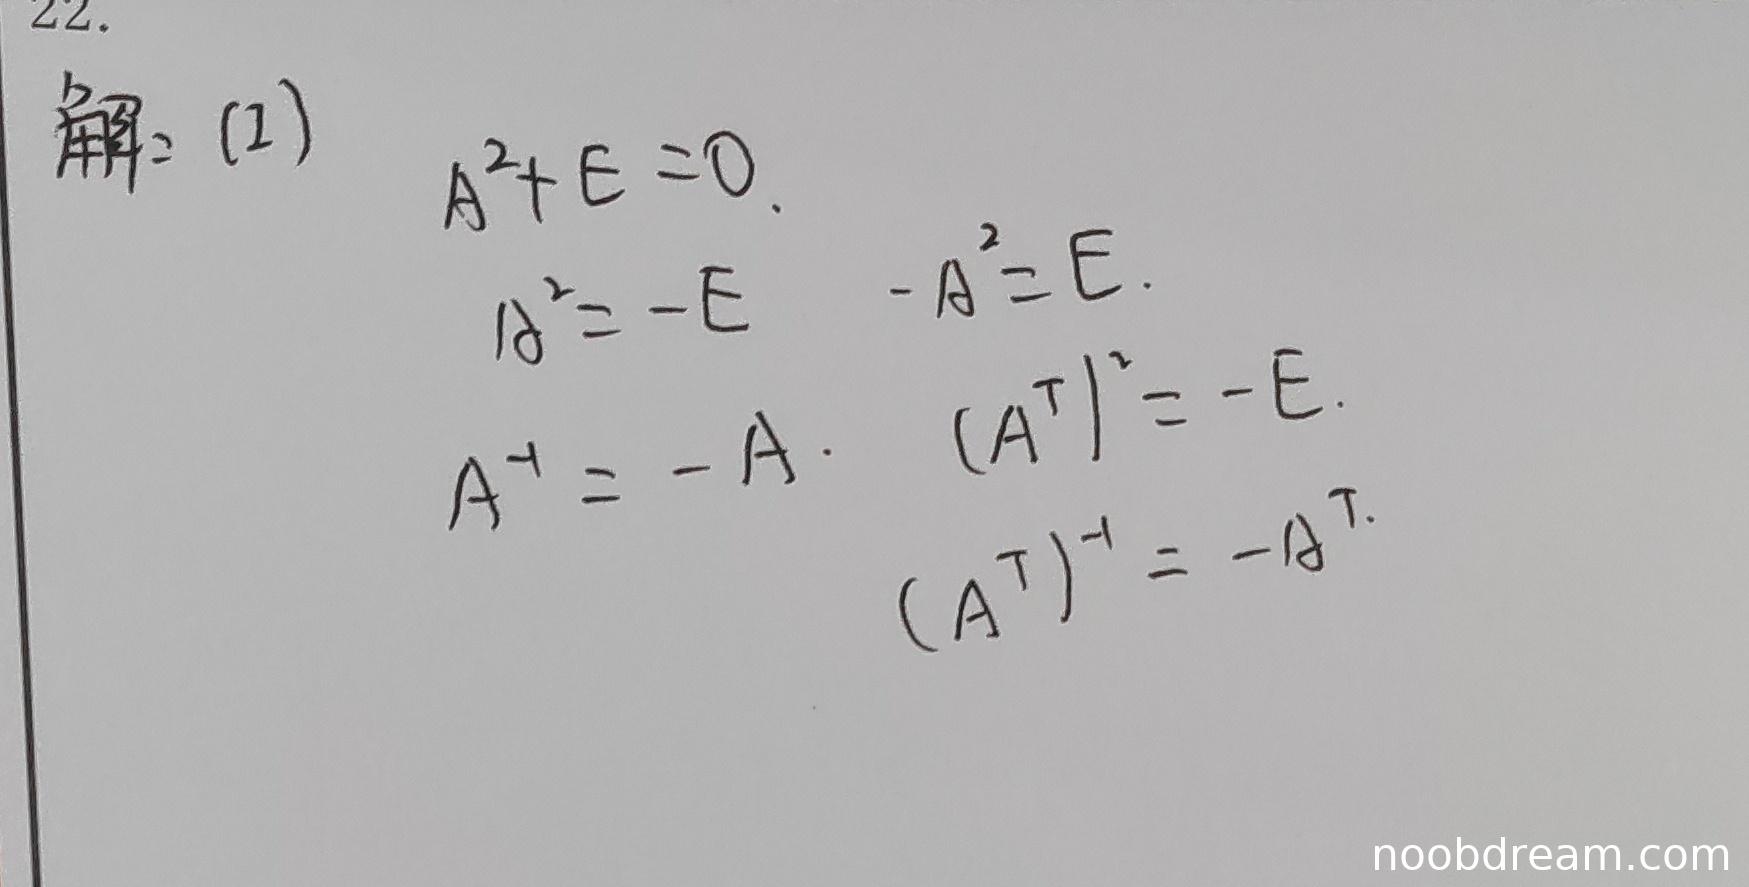 22.
解: (I)
A² + E = O.
A² = -E    -A² = E.
A⁻¹ = -A.    (Aᵀ)² = -E.
(Aᵀ)⁻¹ = -Aᵀ.
noobdream.com